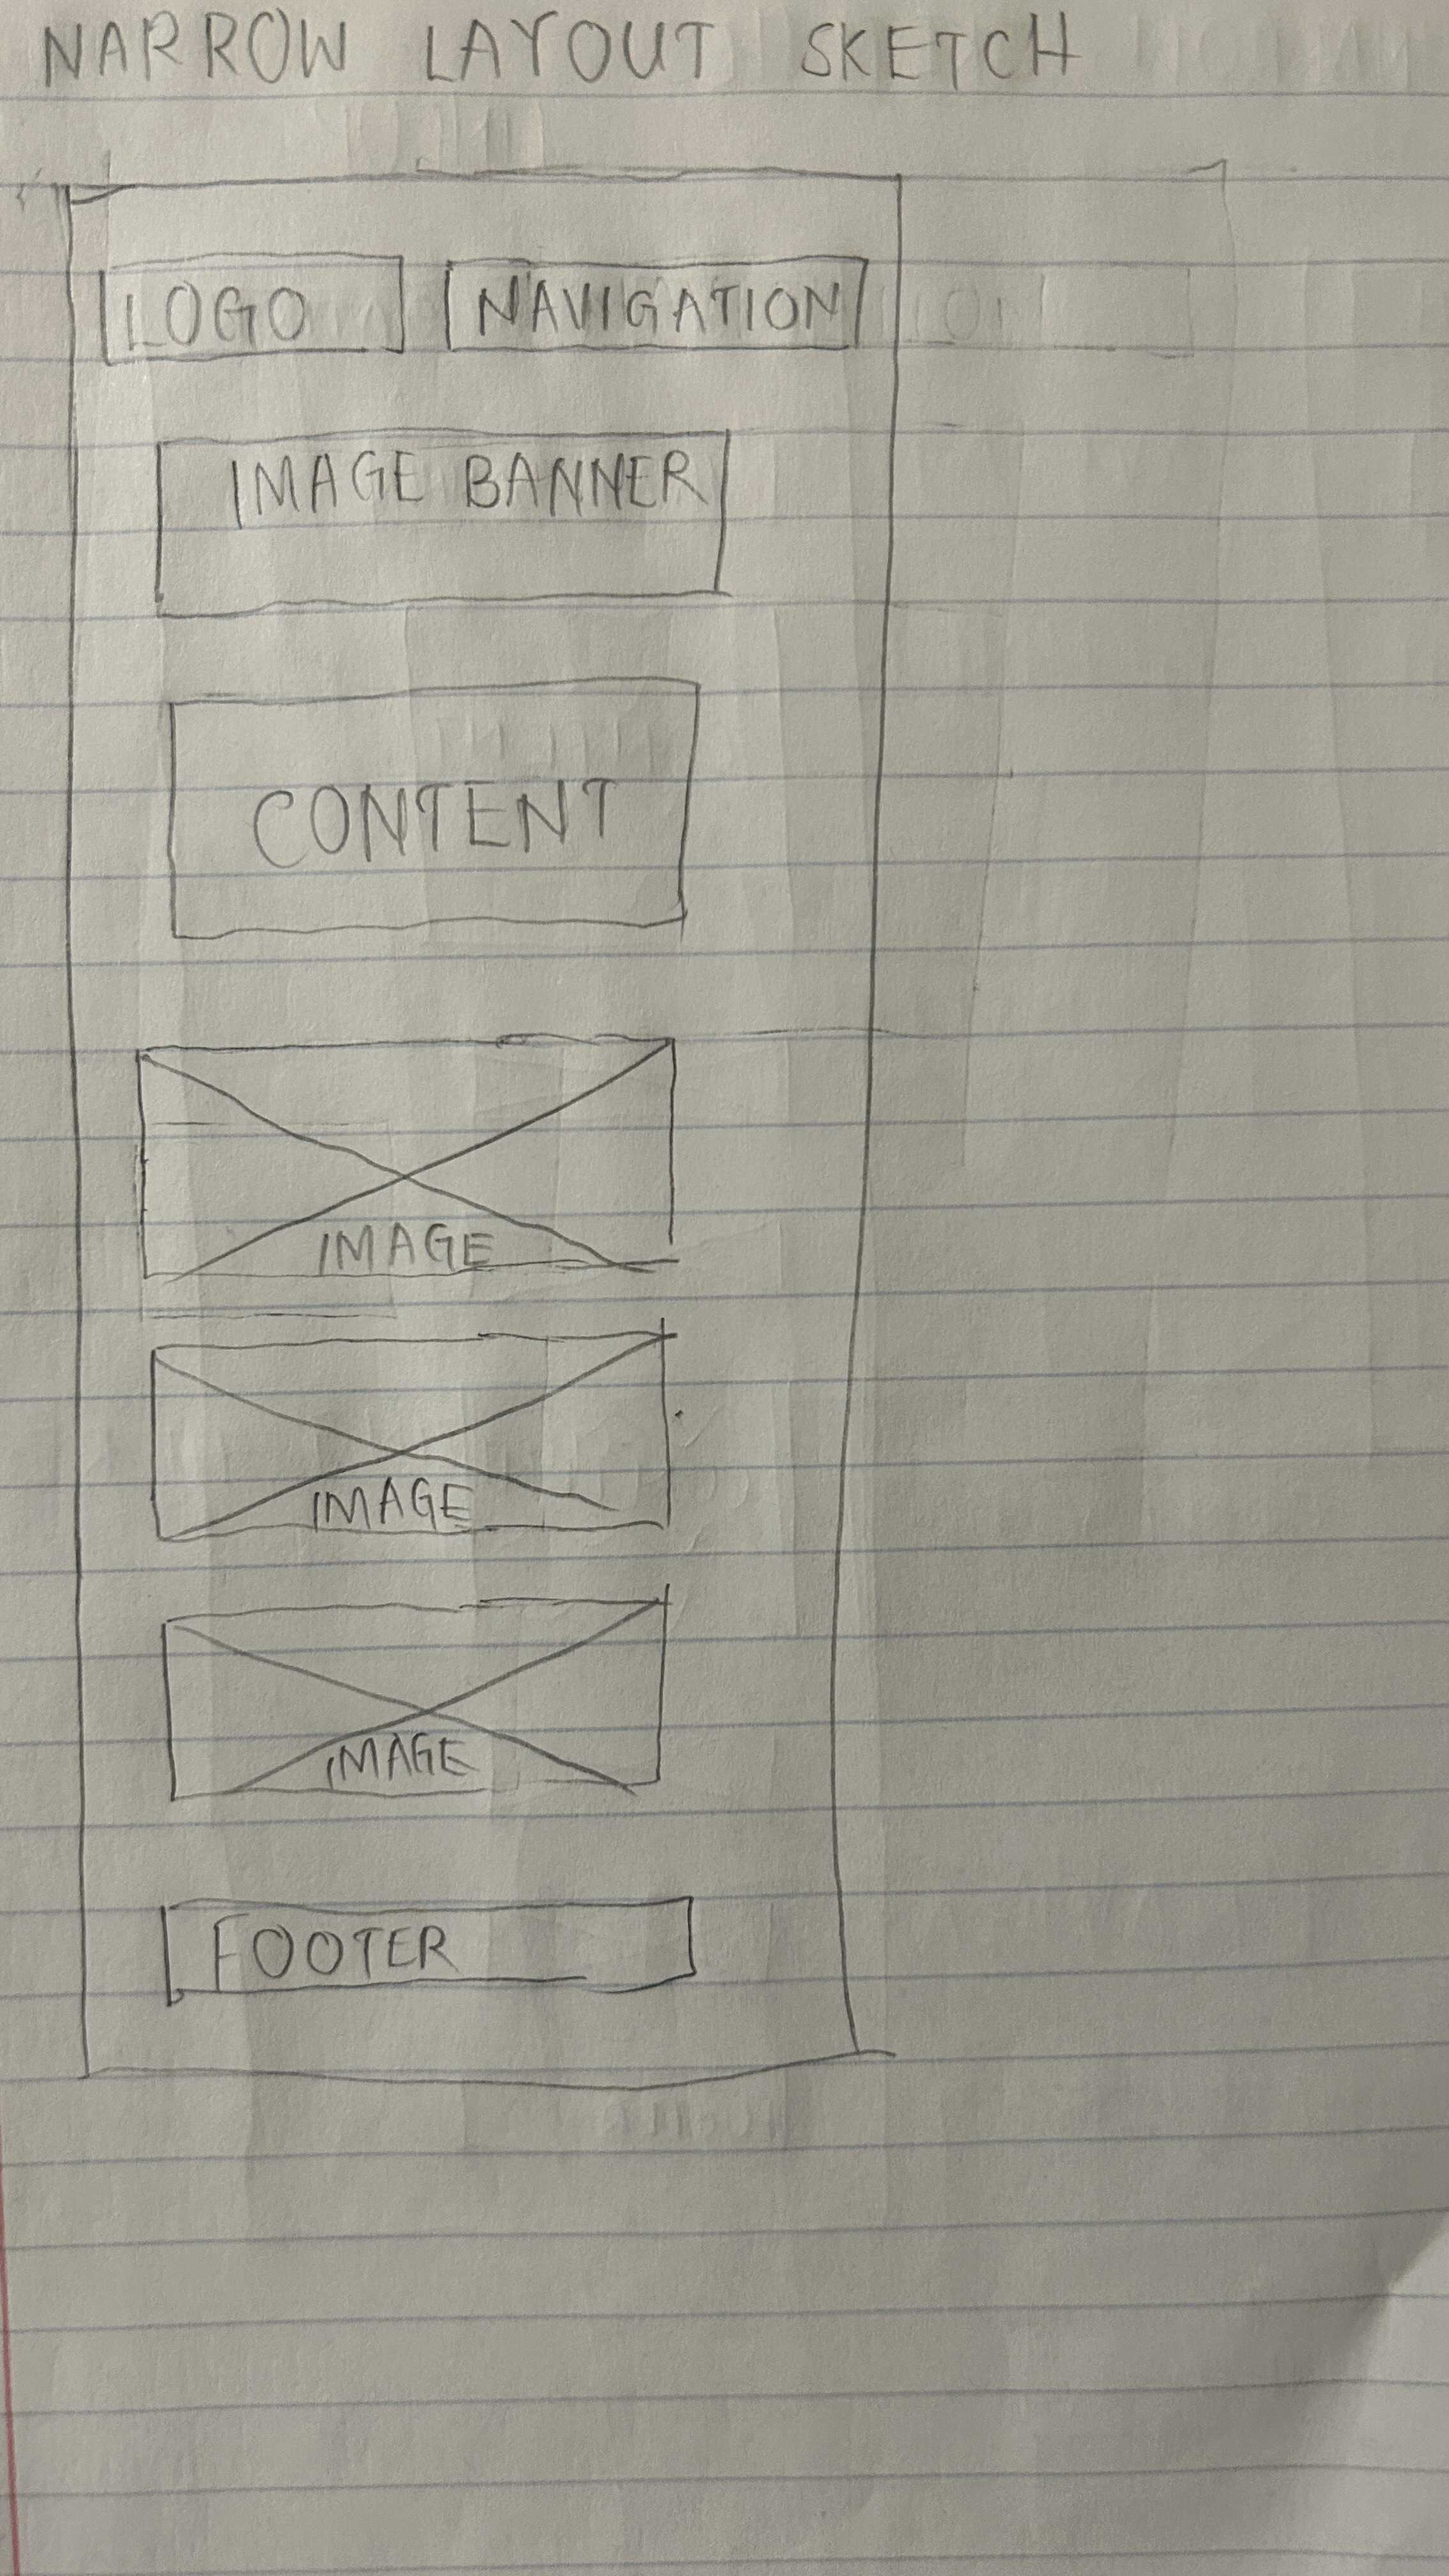 NARROW LAYOUT SKETCH
LOGO NAVIGATION
IMAGE BANNER
CONTENT
IMAGE
IMAGE
IMAGE
FOOTER